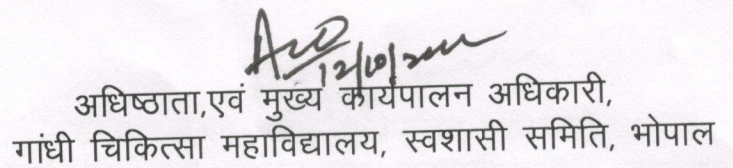 अधिष्ठाता,एवं मुख्य कार्यपालन अधिकारी,
गांधी चिकित्सा महाविद्यालय, स्वशासी समिति, भोपाल